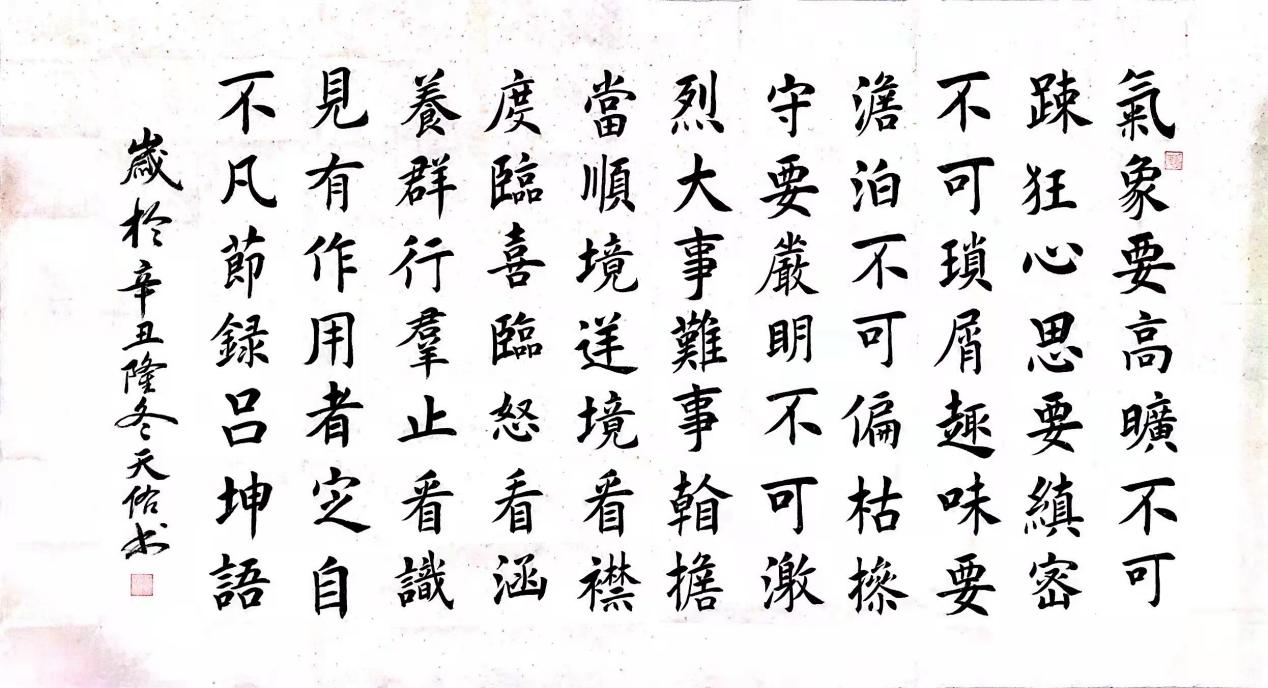 氣象要高曠不可
踈狂心思要縝密
不可瑣屑趣味要
澹泊不可偏枯操
守要嚴明不可激
烈大事難事看擔
當順境逆境看襟
度臨喜臨怒看涵
養群行羣止看識
見有作用者定自
不凡節録呂坤語
歲於辛丑隆冬天佑书